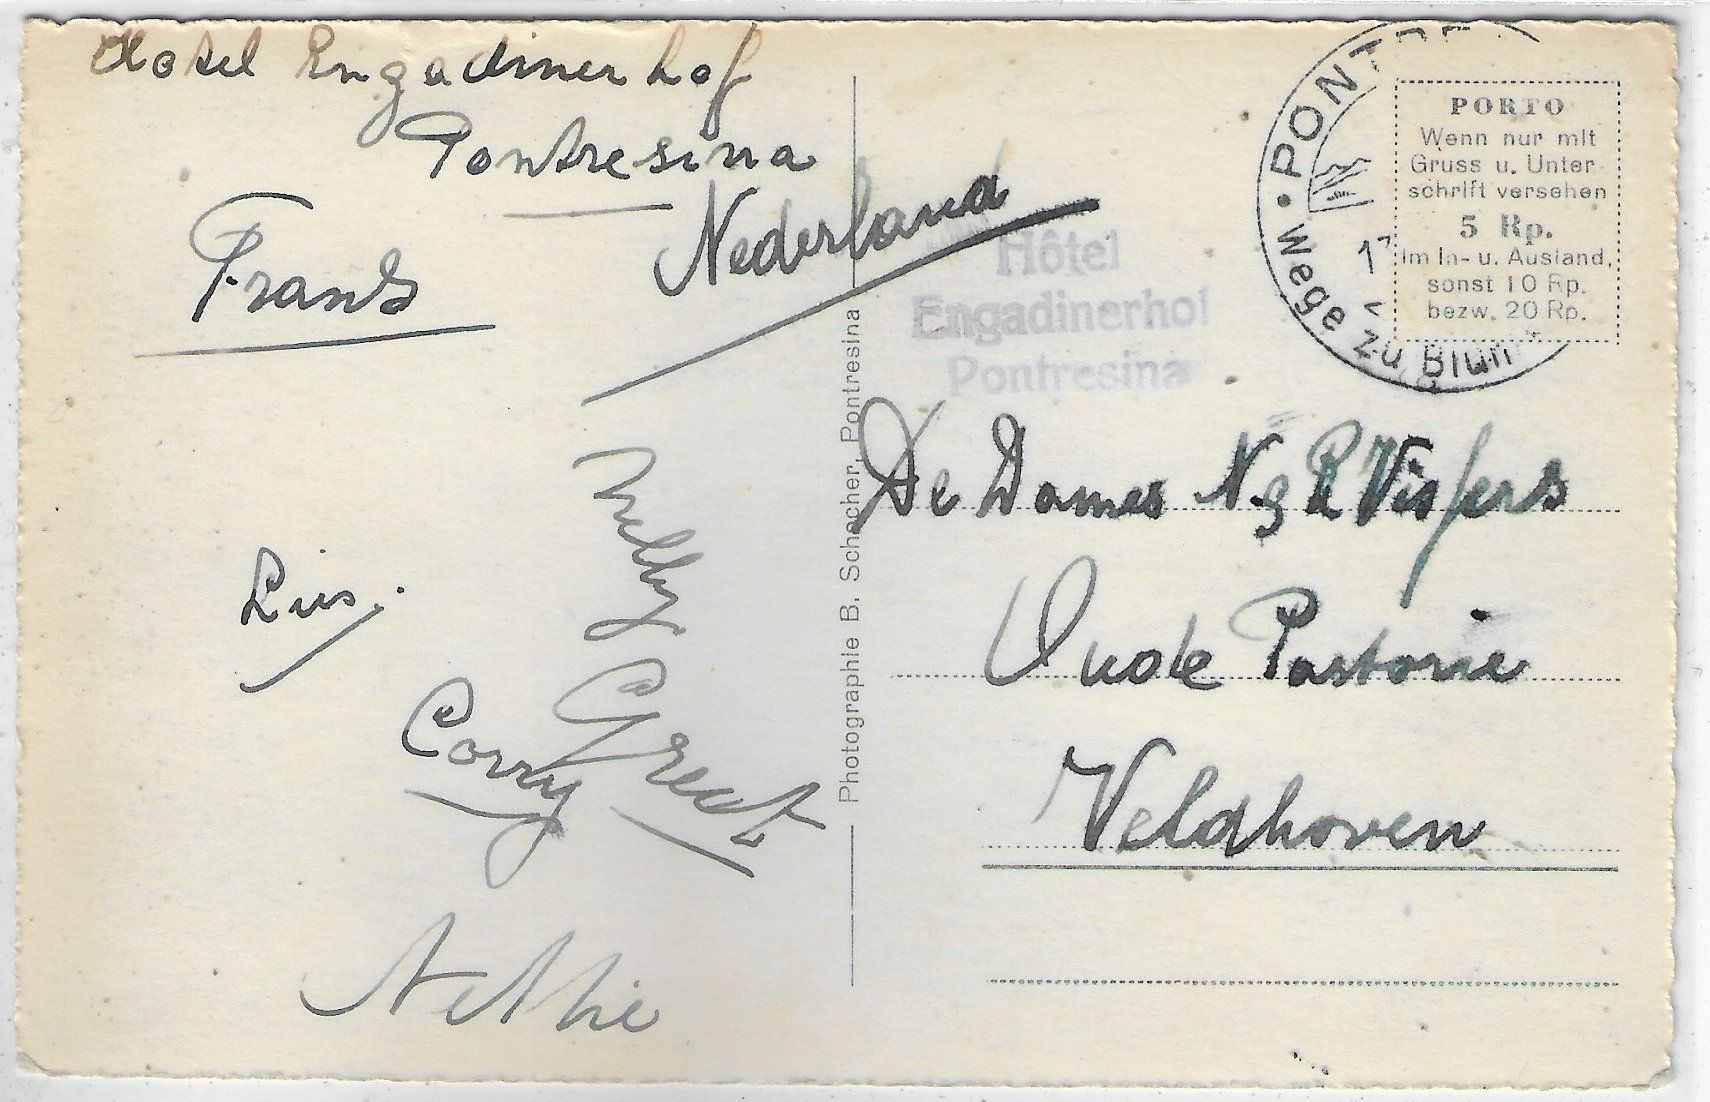 Hotel Engadinerhof
Pontresina
Frans
Nederland
Nelly
Lies.
Corry
Greet
Nettie
Photographie B. Schocher, Pontresina
Hôtel
Engadinerhof
Pontresina
PONTRE
Wege zu Blum
PORTO
Wenn nur mit
Gruss u. Unter
schrift versehen
5 Rp.
im In- u. Ausland,
sonst 10 Rp.
bezw. 20 Rp.
De Dames N. & R Visfers
Oude Pastorie
Veldhoven